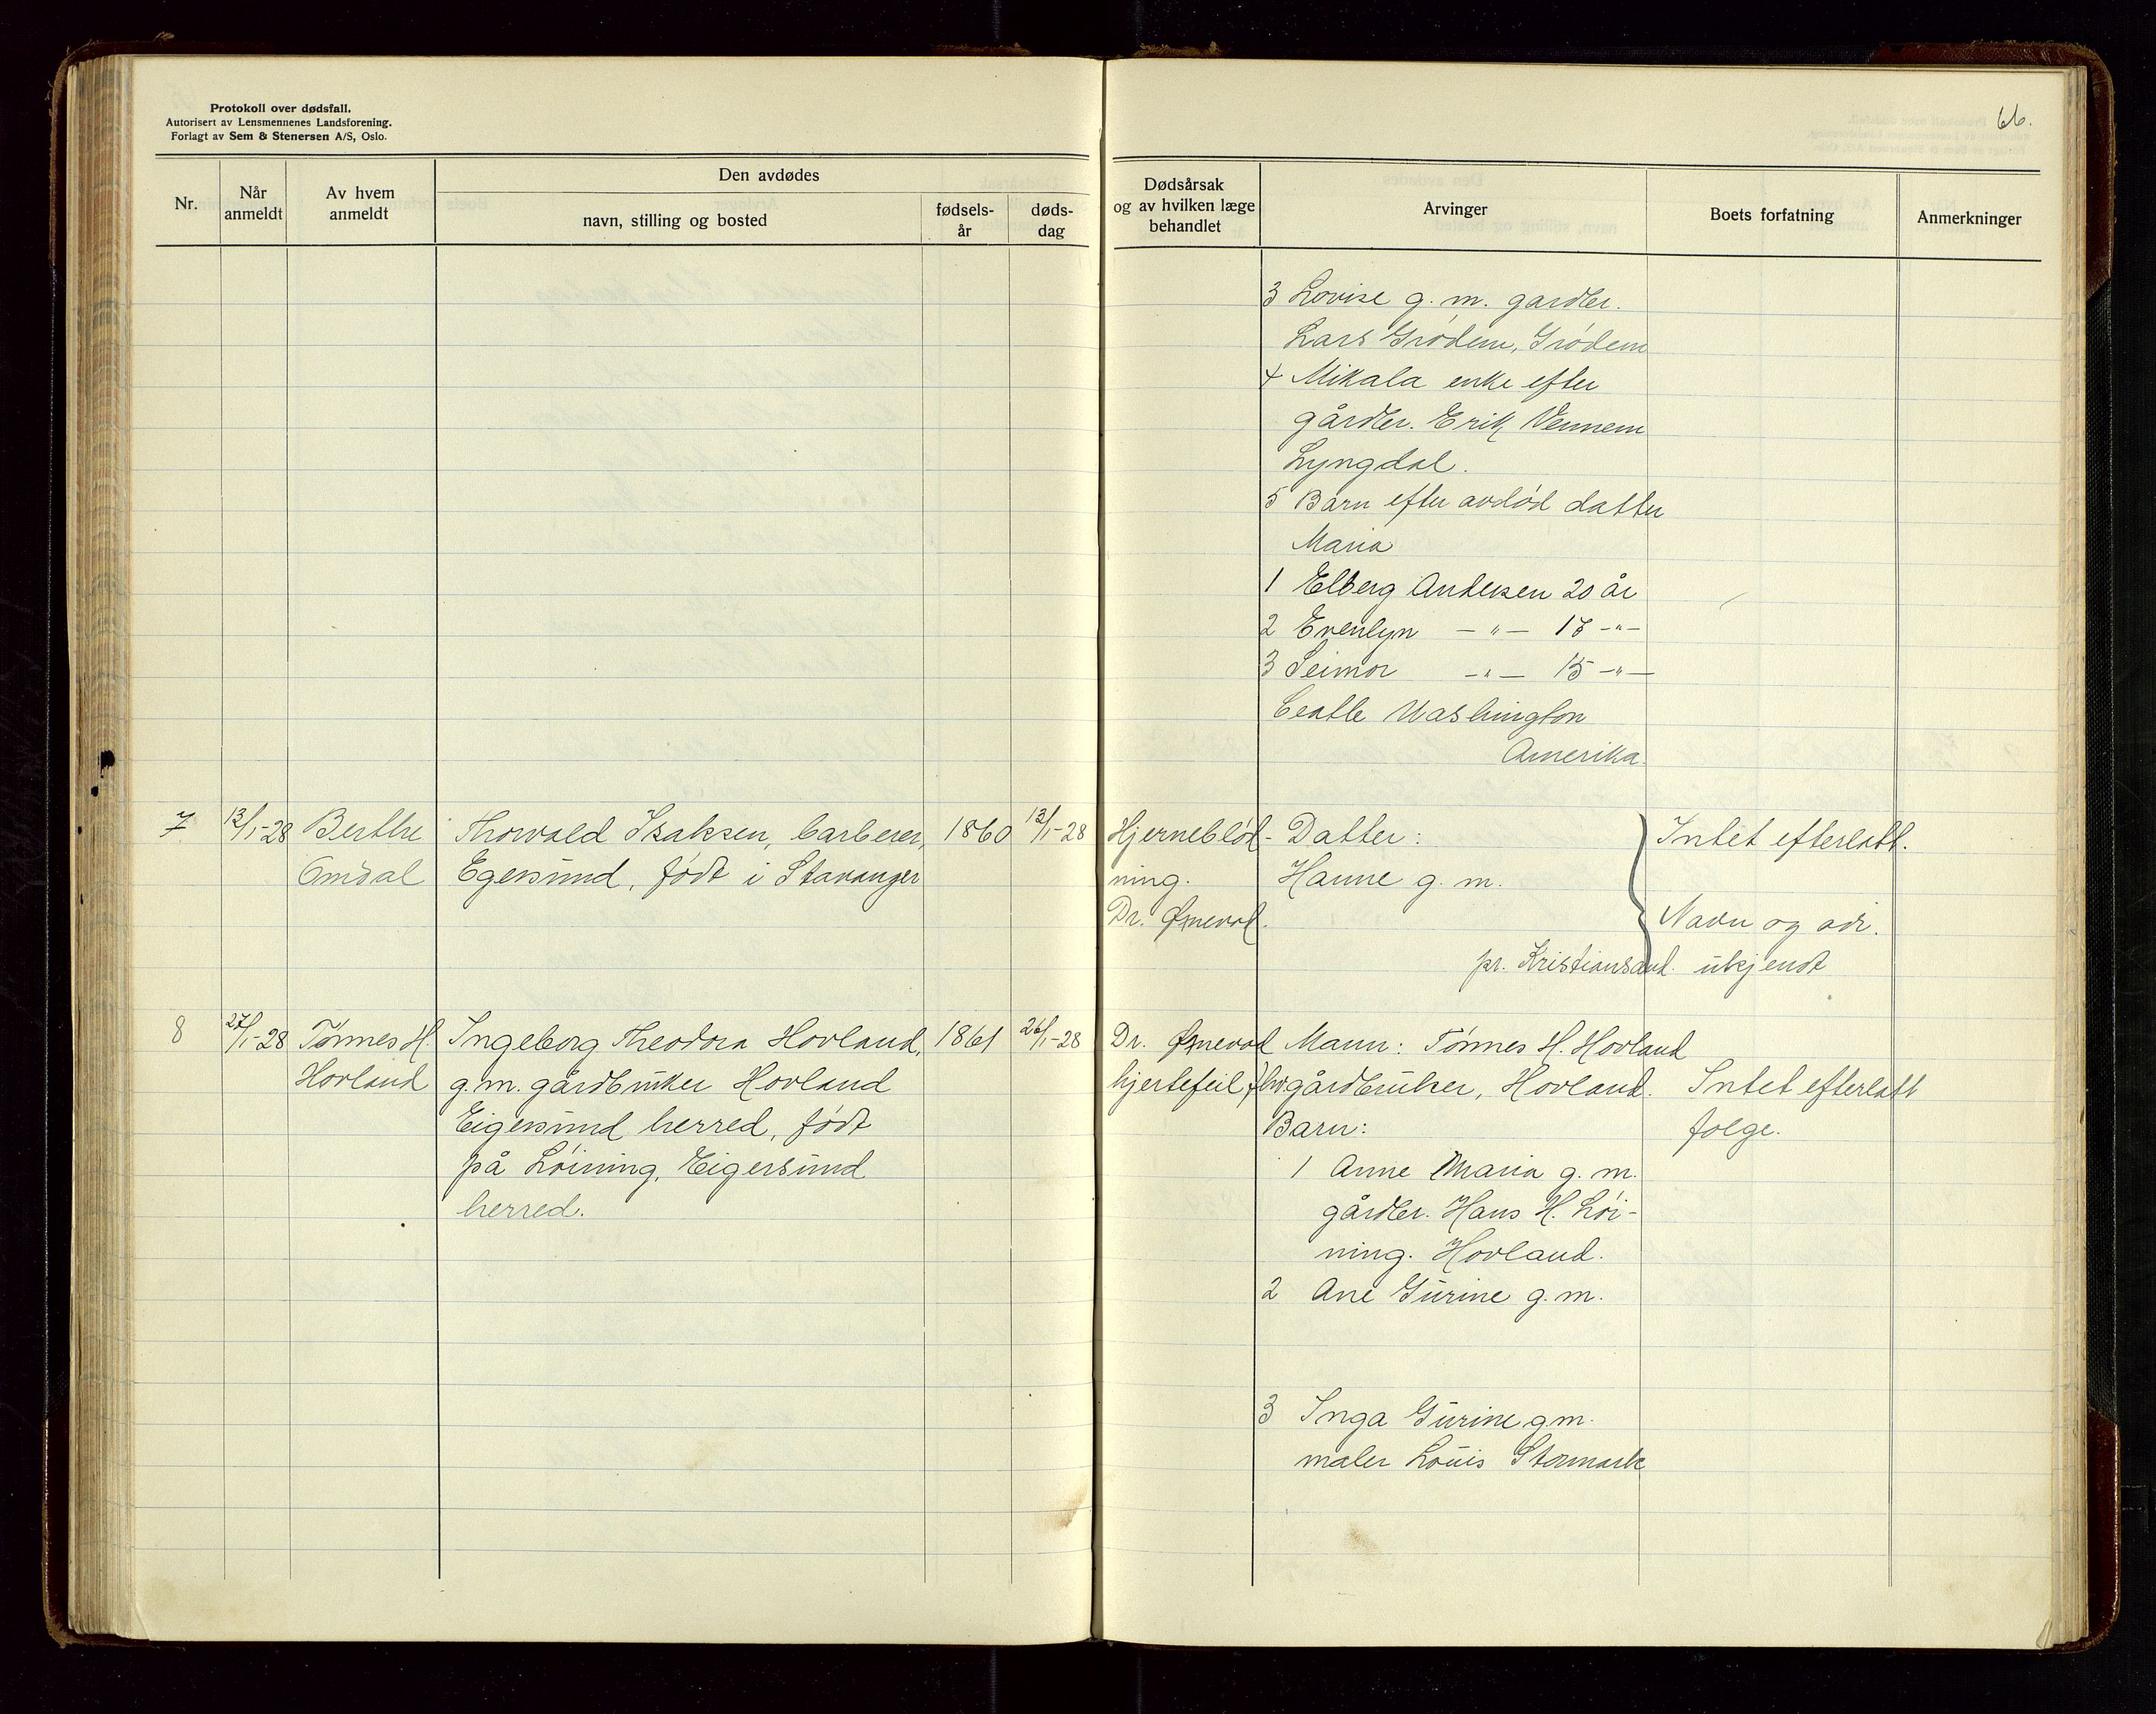 Protokoll over dødsfall.
Autorisert av Lensmennenes Landsforening.
Forlagt av Sem & Stenersen A/S, Oslo.
66.
Nr.
Når anmeldt
Av hvem anmeldt
Den avdødes
navn, stilling og bosted
fødsels-år
døds-dag
Dødsårsak og av hvilken læge behandlet
Arvinger
Boets forfatning
Anmerkninger
3 Lovise g. m. gardbr.
Lars Grødem, Grødem
4 Mikala enke efter
gårdbr. Erik Vennem
Lyngdal.
5 Barn efter avdød datter
Maria
1 Elberg Andersen 20 år
2 Evenlyn -"- 17 -"-
3 Seimor -"- 15 -"-
Ceatle Washington
Amerika.
7 13/1-28 Berthe Thorvald Isaksen, barberer, 1860 13/1-28 Hjerneblød- Datter: Intet efterlatt.
Omdal Egersund, født i Stavanger ning. Hanne g. m.
Dr. Ørnevol. Navn og adr.
pr. Kristiansand. ukjendt
8 27/1-28 Tønnes H. Ingeborg Theodora Hovland, 1861 26/1-28 Dr. Ørnevol Mann: Tønnes H. Hovland
Hovland g.m. gårdbruker Hovland hjertefeil, gårdbruker, Hovland. Intet efterlatt
Eigersund herred, født Barn: folge.
på Løining, Eigersund 1 Anne Maria g. m.
herred. gårdbr. Hans H. Løi-
ning. Hovland.
2 Ane Gurine g. m.
3 Inga Gurine g.m.
maler Louis Stormark